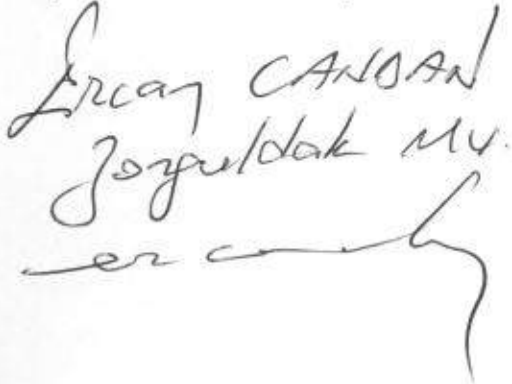 Ercan CANDAN
Zonguldak Mv.